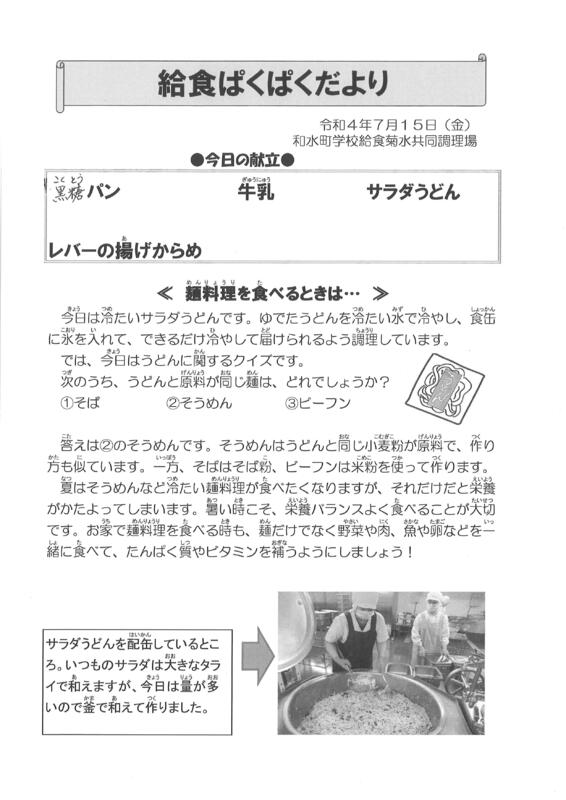 給食ぱくぱくだより
令和４年７月１５日（金）
和水町学校給食菊水共同調理場
●今日の献立●
黒糖パン 牛乳 サラダうどん
レバーの揚げからめ
≪ 麺料理を食べるときは… ≫
今日は冷たいサラダうどんです。ゆでたうどんを冷たい水で冷やし、食缶
に氷を入れて、できるだけ冷やして届けられるよう調理しています。
では、今日はうどんに関するクイズです。
次のうち、うどんと原料が同じ麺は、どれでしょうか？
①そば ②そうめん ③ビーフン
答えは②のそうめんです。そうめんはうどんと同じ小麦粉が原料で、作り
方も似ています。一方、そばはそば粉、ビーフンは米粉を使って作ります。
夏はそうめんなど冷たい麺料理が食べたくなりますが、それだけだと栄養
がかたよってしまいます。暑い時こそ、栄養バランスよく食べることが大切
です。お家で麺料理を食べる時も、麺だけでなく野菜や肉、魚や卵などを一
緒に食べて、たんぱく質やビタミンを補うようにしましょう！
サラダうどんを配缶しているとこ
ろ。いつものサラダは大きなタラ
イで和えますが、今日は量が多
いので釜で和えて作りました。